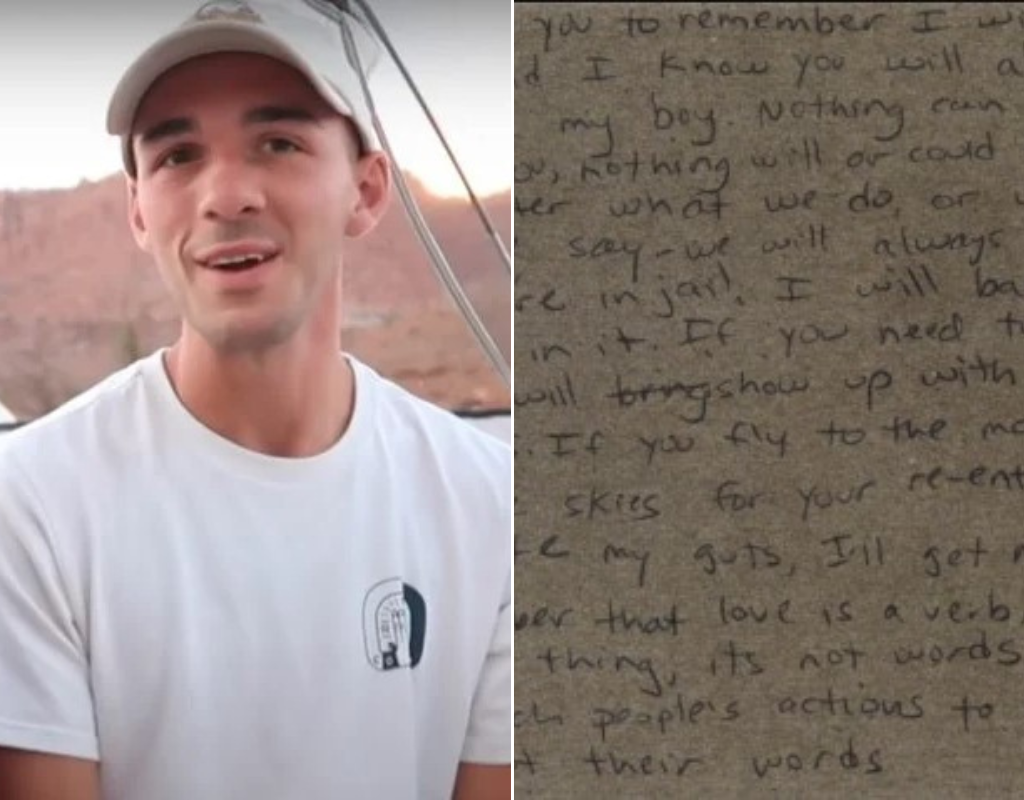 you to remember I wi
d I know you will a
my boy. Nothing can
ou, nothing will or could
ter what we do, or w
say - we will always
re in jail, I will ba
in it. If you need t
will show up with
. If you fly to the mo
skies for your re-ent
te my guts, I'll get r
ber that love is a verb,
thing, its not words
ch people's actions to
t their words